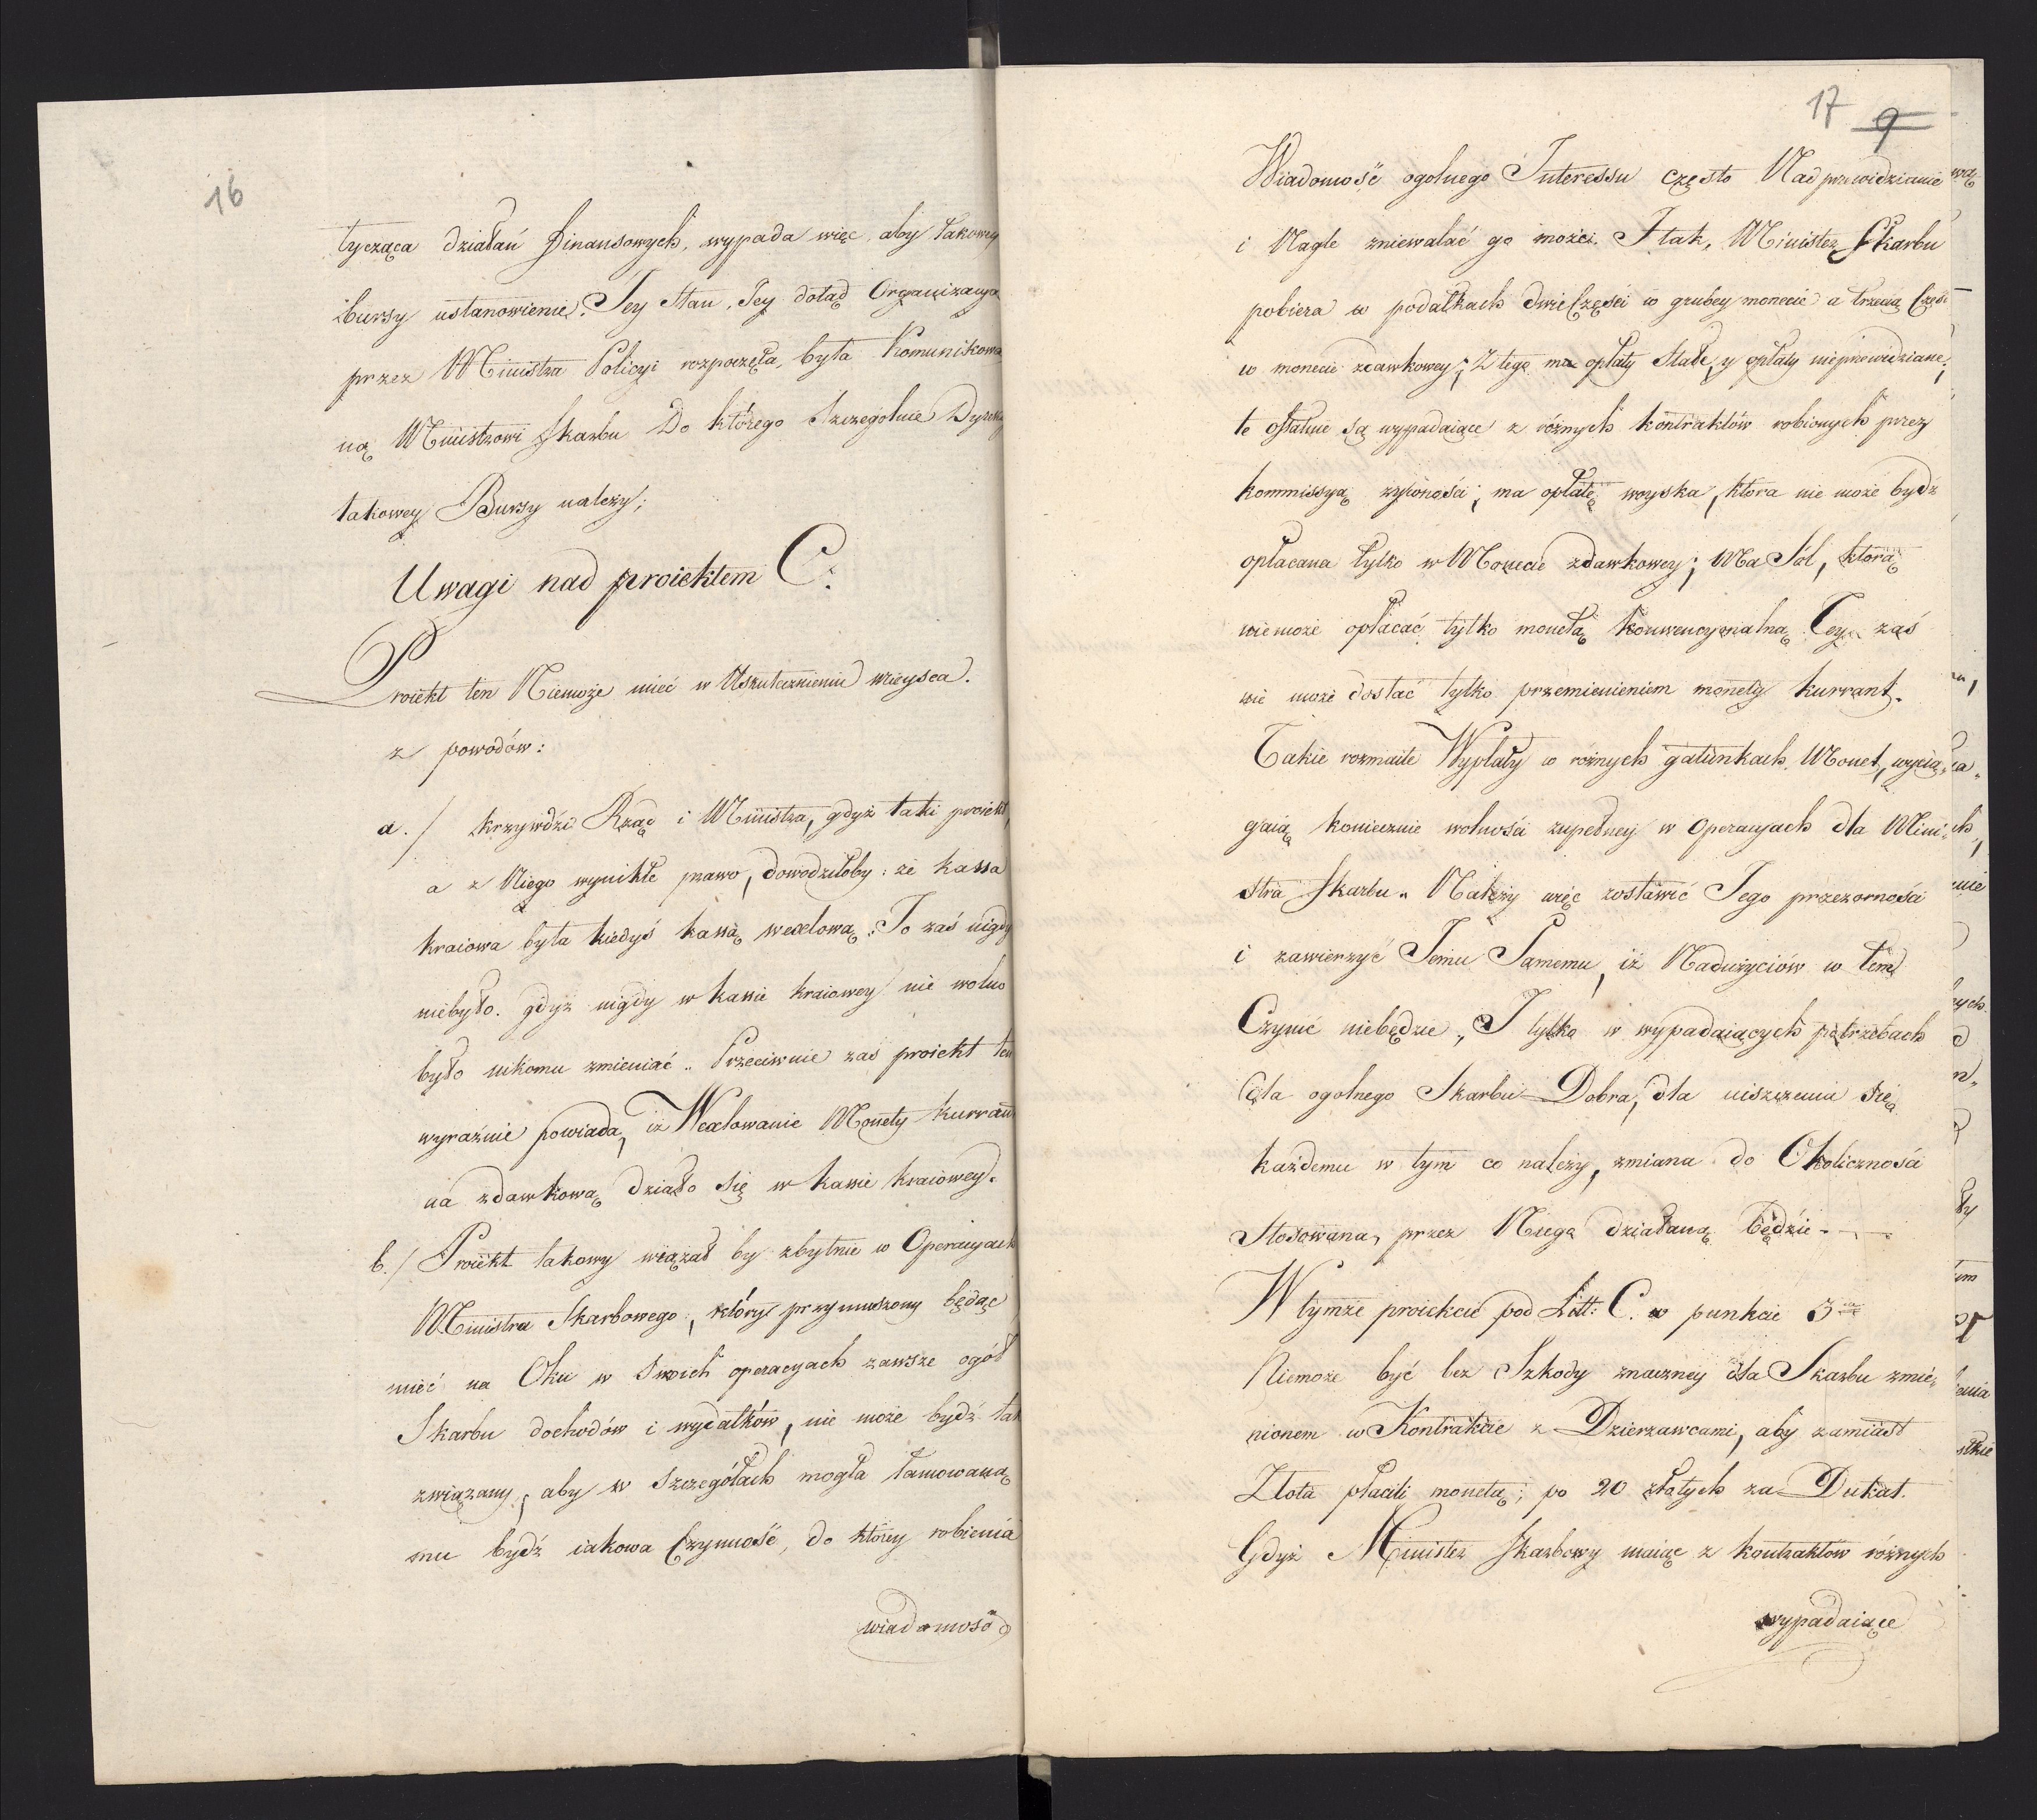 16
tycząca działań Finansowych, wypada więc aby takowey
Bursy ustanowienie. Jey Stan, Jey dotąd Organizacya
przez Ministra Policyi rozpoczęta, była Komunikowa
ną Ministrowi Skarbu Do którego Szczegolnie Dyrek
takowey Bursy należy;
Uwagi nad proiektem C.
Proiekt ten Niemoże mieć w Uskutecznieniu mieysca.
z powodów:
a./ Krzywdzi Rząd i Ministra, gdyż taki proiekt,
a z Niego wynikłe prawo, dowodziłoby: że kassa
kraiowa była kiedyś kassą wexlową. To zaś nigdy
niebyło. gdyż nigdy w kassie kraiowey nie wolno
było nikomu zmieniać. Przeciwnie zaś proiekt ten
wyraźnie powiada, iż Wexlowanie Monety kurran
na zdawkową działo się w kassie kraiowey.
b./ Proiekt takowy wiązał by zbytnie w Operacyach
Ministra Skarbowego, który przymuszony będąc
mieć na Oku w Swoich operacyach zawsze ogół
Skarbu dochodów i wydatków, nie może bydź tak
związany, aby w Szczegółach mogła tamowaną
mu bydź iakowa Czynność, do którey robienia
wiadomość
17 9
Wiadomość ogolnego Interessu często Nad przewidzianie
i Nagle zniewalać go może. I tak, Minister Skarbu
pobiera w podatkach dwie Części w grubey monecie a trzecią Część
w monecie zdawkowey; Z tego ma opłaty Stałe, y opłaty nieprzewidziane,
te ostatnie są wypadaiące z różnych kontraktów robionych przez
kommissyą żywności; ma opłatę woyska, ktora nie może bydź
opłacana tylko w Monecie zdawkowey; Ma Sol, ktorą
nie może opłacać tylko monetą konwencyonalną. Tey zaś
nie może dostać tylko przemienieniem monety kurrant.
Takie rozmaite Wypłaty w różnych gatunkach Monet, wycią„
gaią koniecznie wolności zupełney w Operacyach dla Mini„
stra Skarbu. Należy więc zostawić Jego przezorności
i zawierzyć Jemu Samemu, iż Nadużyciów w tem
Czynić niebędzie, I tylko w wypadaiących potrzebach
dla ogolnego Skarbu Dobra, dla uiszczenia się
każdemu w tym co należy, zmiana do Okoliczności
Stosowana, przez Niego działaną będzie
W tymże proiekcie pod Litt: C. w punkcie 3
Niemoże być bez Szkody znaczney dla Skarbu zmie„
nionem w Kontrakcie z Dzierzawcami, aby zamiast
Złota płacili monetą; po 20 złotych za Dukat.
Gdyż Minister Skarbowy maiąc z kontraktów różnych
wypadaiące